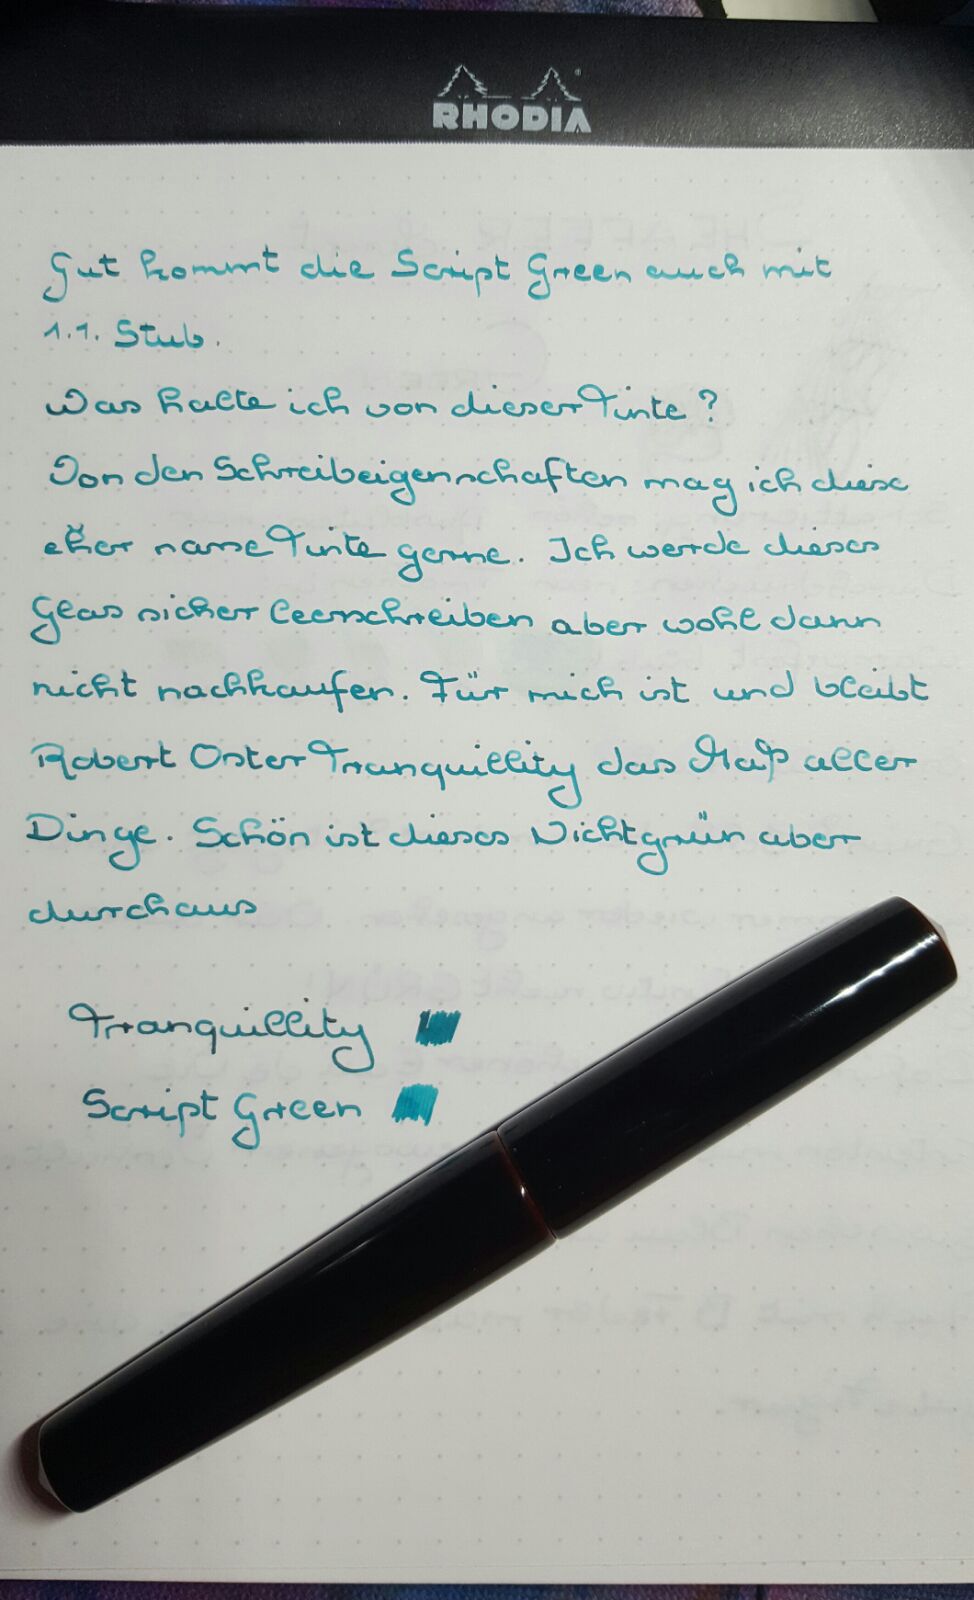 RHODIA
Gut kommt die Script Green auch mit
1.1. Stub.
Was halte ich von dieser Tinte?
Von den Schreibeigenschaften mag ich diese
eher nasse Tinte gerne. Ich werde dieses
Glas sicher leerschreiben aber wohl dann
nicht nachkaufen. Für mich ist und bleibt
Robert Oster Tranquillity das Maß aller
Dinge. Schön ist dieses Nichtgrün aber
durchaus
Tranquillity
Script Green